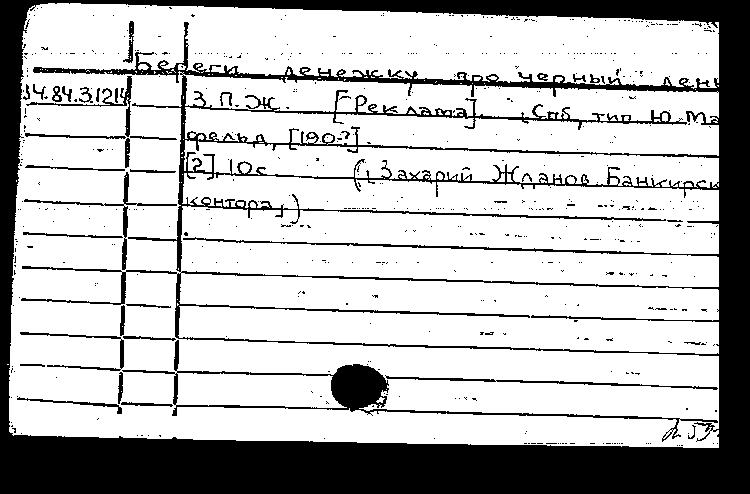 Береги денежку про черный ден
14.84.3.1214 З.П.Ж. [Реклама]. Спб, тип Ю Ма
фельд, [190-?].
[2], 10с (Захарий Жданов Банкирск
контора)